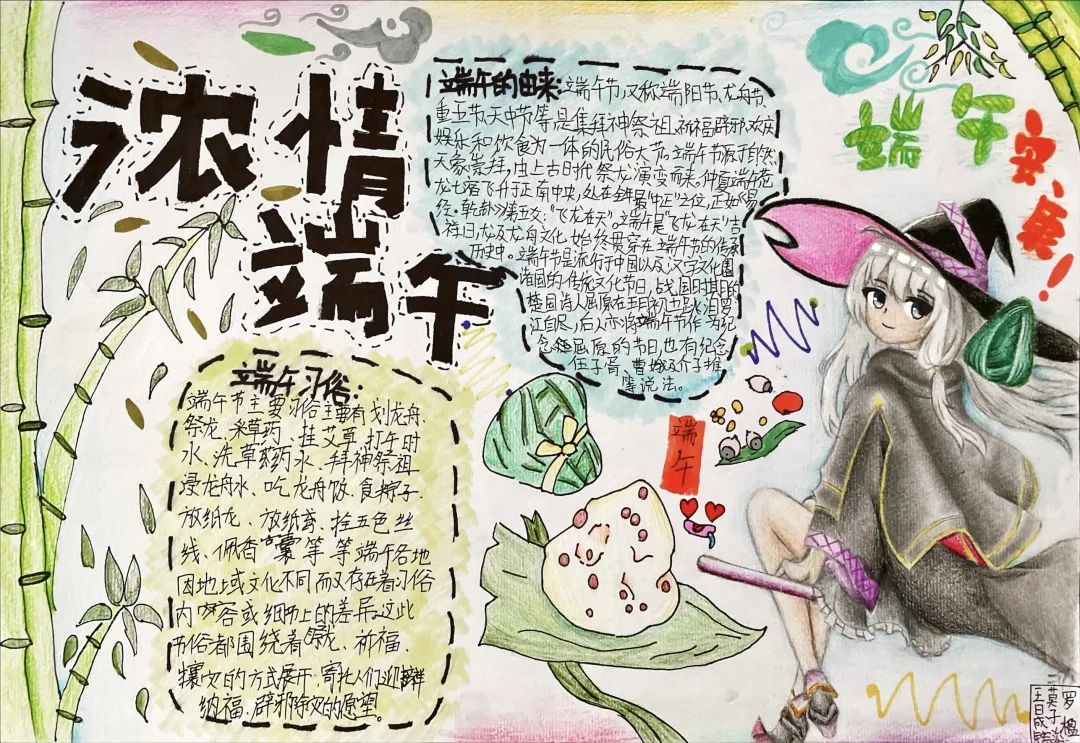 浓情
端午
端午
安、康!
端午的由来:端午节,又称端阳节、龙舟节、
重五节、天中节等,是集拜神祭祖、祈福辟邪、欢庆
娱乐和饮食为一体的民俗大节。端午节源于自然
天象崇拜,由上古时代祭龙演变而来。仲夏端午苍
龙七宿飞升于正南中央,处在全年最"中正"之位,正如《易
经·乾卦》第五爻:"飞龙在天"。端午是"飞龙在天"吉
祥日,龙及龙舟文化始终贯穿在端午节的传承
历史中。端午节是流行于中国以及汉字文化圈
诸国的传统文化节日,
楚国诗人屈原在五月初五跳汨罗
江自尽,后人亦将端午节作为纪
念屈原的节日,也有纪念
伍子胥、曹娥及介子推
等说法。
端午习俗:
端午节主要习俗主要有划龙舟、
祭龙、采草药、挂艾草、打午时
水、洗草药水、拜神祭祖、
浸龙舟水、吃龙舟饭、食粽子、
放纸龙、放纸鸢、拴五色丝
线、佩香囊等等端午各地
因地域文化不同而又存在着习俗
内容或细节上的差异。这些
节俗都围绕着祭龙、祈福、
攘灾的方式展开,寄托人们迎祥
纳福、辟邪除灾的愿望。
端
午